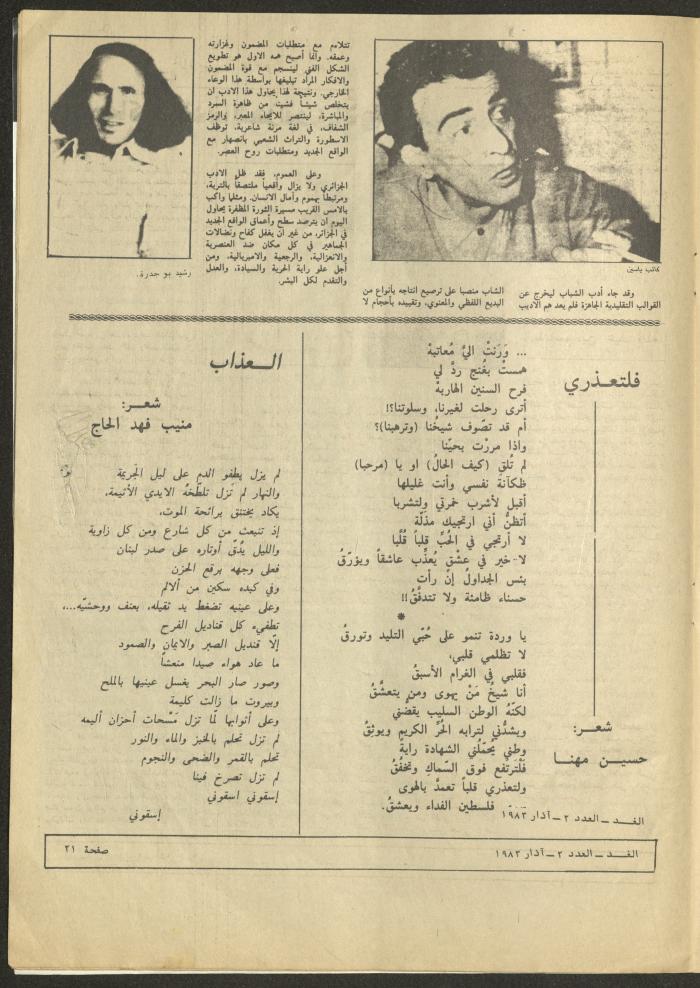 كاتب ياسين
وقد جاء أدب الشباب ليخرج عن
القوالب التقليدية الجاهزة فلم يعد هم الاديب
الشاب منصبا على ترصيع انتاجه بأنواع من
البديع اللفظي والمعنوي، وتقييده بأحجام لا
تتلاءم مع متطلبات المضمون وغزارته
وعمقه. وانما أصبح همه الاول هو تطويع
الشكل الفني لينسجم مع قوة المضمون
والافكار المراد تبليغها بواسطة هذا الوعاء
الخارجي. ونتيجة لهذا يحاول هذا الادب ان
يتخلص شيئاً فشيئاً من ظاهرة السرد
والمباشرة، لينتصر للايحاء المعبر، والرمز
الشفاف، في لغة مرنة شاعرية، توظف
الاسطورة والتراث الشعبي بانصهار مع
الواقع الجديد ومتطلبات روح العصر.
وعلى العموم، فقد ظل الادب
الجزائري ولا يزال واقعياً ملتصقاً بالتربة،
ومرتبطاً بهموم وآمال الانسان. ومثلما واكب
بالامس القريب مسيرة الثورة المظفرة يحاول
اليوم ان يترصد سطح وأعماق الواقع الجديد
في الجزائر، من غير ان يغفل كفاح ونضالات
الجماهير في كل مكان ضد العنصرية
والانعزالية، والرجعية والامبريالية، ومن
أجل علو راية الحرية والسيادة، والعدل
والتقدم لكل البشر.
رشيد بو جدرة.
فلتعـذري
... وَرَنتْ اليَّ مُعاتبهْ
همستْ بغُنج ردَّ لي
فرح السنين الهاربهْ
أترى رحلت لغيرنا، وسلوتنا؟!
أم قد تصّوف شيخُنا (وترهبنا)؟
واذا مررْت بحيّنا
لم تُلقِ (كيف الحالُ) او يا (مرحبا)
ظكآنة نفسي وأنت غليلها
أقبل لأشرب خمرتي ولتشربا
أتظنُّ أني ارتجيك مذلّة
لا أرتجي في الحُبِّ قلباً قُلَّبا
لا خير في عشْقٍ يُعذّب عاشقاً ويؤرّقُ
بئس الجداولُ إنْ رأت
حسناء ظامئة ولا تتدفَّقُ!!
*
يا وردة تنمو على حُبّي التليد وتورقُ
لا تظلمي قلبي،
فقلبي في الغرام الأسبقُ
أنا شيخُ مَنْ يهوى ومن يتعشَّقُ
لكنّهُ الوطن السليب يقضُّني
ويشدُّني لترابه الحُرّ الكريم ويوثِقُ
وطني يُحمّلُني الشهادة رايةً
فَلْتَرتفع فوق السّماكِ وتخفُقُ
ولتعذري قلباً تعمدَّ بالهوى
فلسطين الفداء ويعشقُ.
شعـر:
حسيـن مهنـا
الغـد ــ العدد ٢ ــ آذار ١٩٨٣
العـذاب
شعـر:
منيب فهد الحاج
لم يزل يطفو الدم على ليل الجريمة
والنهار لم تَزل تلطّخهُ الايدي الأثيمة،
يكاد يختنق برائحة الموت،
إذ تنبعث من كل شارع ومن كل زاوية
والليل يُدّق أوتاره على صدر لبنان
فعلى وجهه برقع الحزن
وفي كبده سكين من الألم
وعلى عينيه تضغط يد ثقيله، بعنف ووحشيّه...،
تطفيء كل قناديل الفرح
إلّا قنديل الصبر والايمان والصمود
ما عاد هواء صيدا منعشاً
وصور صار البحر يغسل عينيها بالملح
وبيروت ما زالت كليمة
وعلى أثوابها لّما تزل مَسْحات أحزان أليمه
لم تزل تحلم بالخبز والماء والنور
تحلم بالقمر والضحى والنجوم
لم تزل تصرخ فينا
إسقوني اسقوني
إسقوني
الغـد ــ العدد ٢ ــ آذار ١٩٨٣
صفحة ٢١